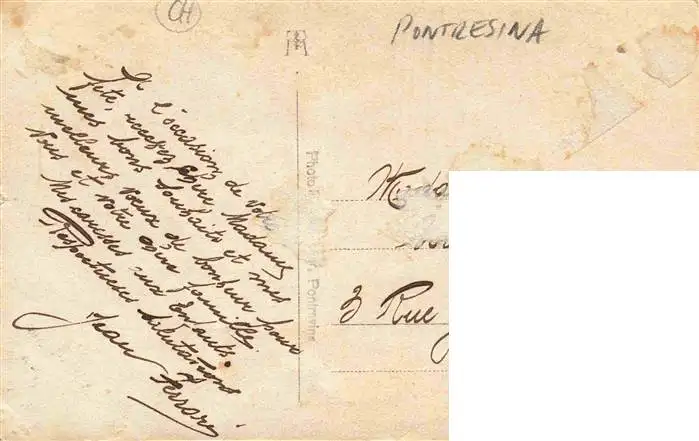 CH
PONTRESINA
A l'occasion de votre
fête, recevez chère Madame,
mes bons souhaits et mes
meilleurs vœux de bonheur pour
vous et votre famille.
Mes caresses aux Enfants.
Respectueuses salutations
Jean Ferrari
Photo Pontresina
3 Rue